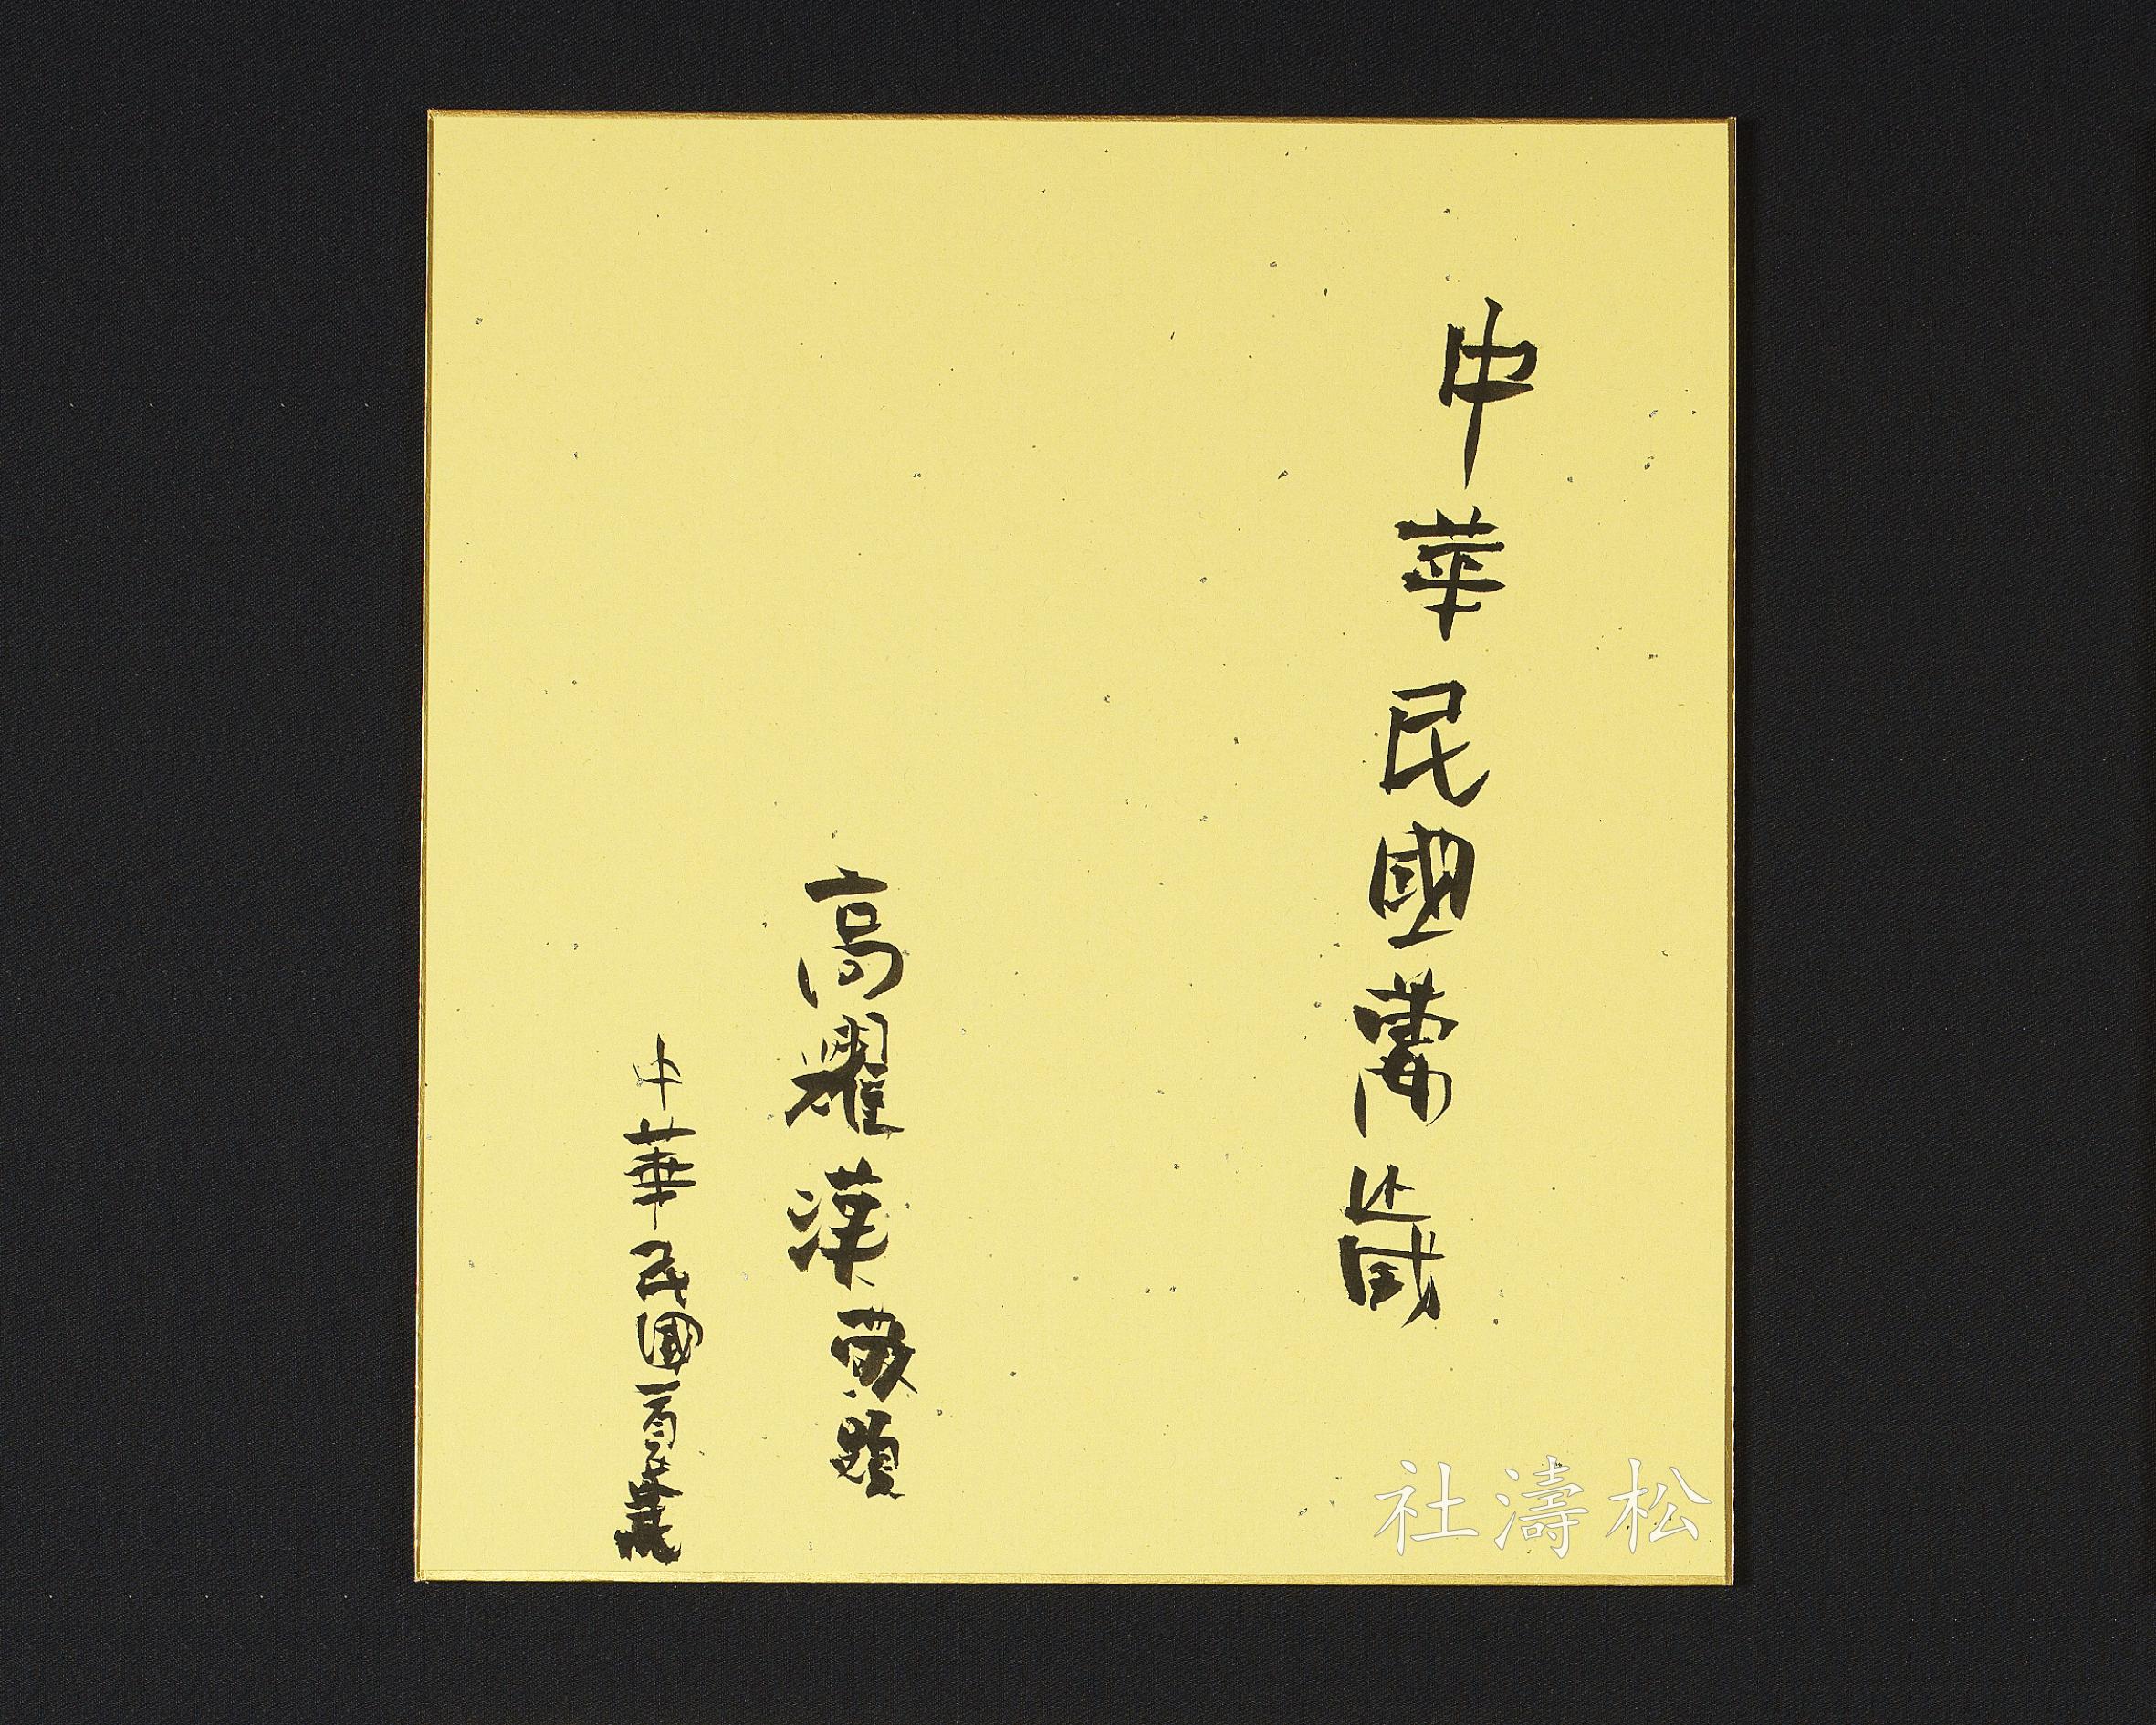 中華民國萬歲
高耀漢敬題
中華民國一百
松濤社